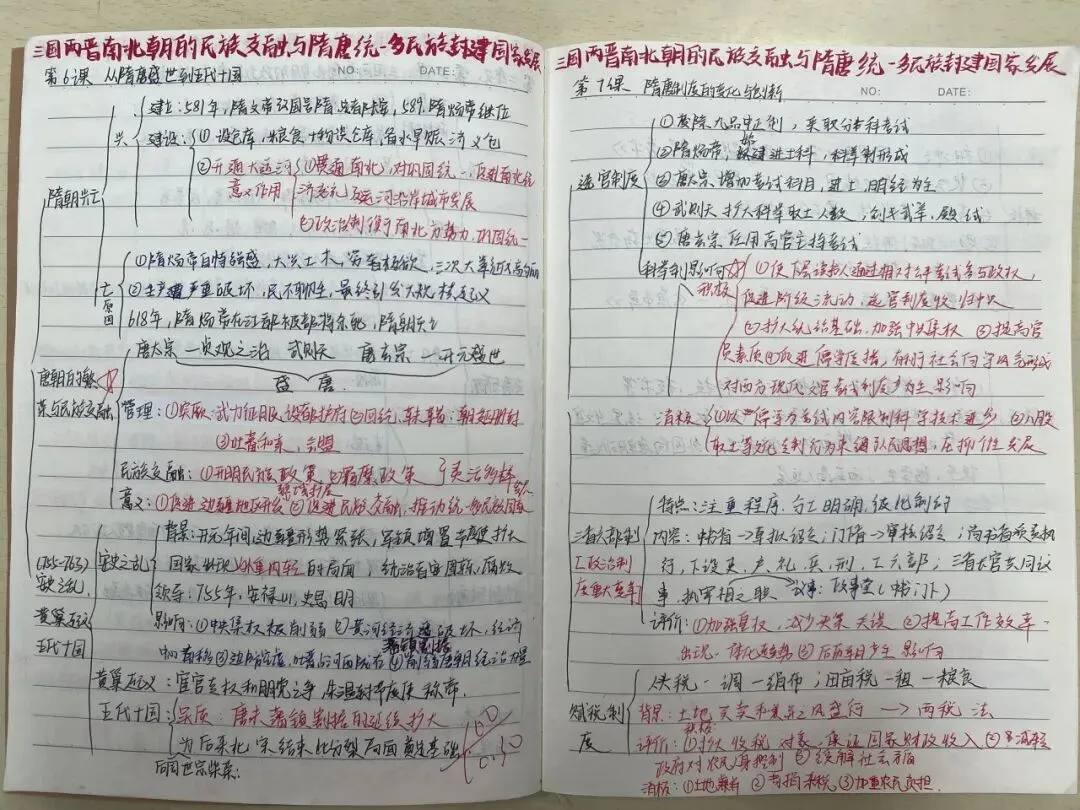 三国两晋南北朝的民族交融与隋唐统一多民族封建国家发展
第6课 从隋唐盛世到五代十国 NO: DATE:
建立:581年,隋文帝 国号隋 589. 隋炀帝继位
兴 建设:①设仓库,粮食十物资仓库,备水旱赈济 义仓
②开通大运河 ①贯通南北,对巩固统一,促进南北经
意义作用 济交流及运河沿岸城市发展
隋朝兴亡
②政治制 南北方势力,巩固统一
①隋炀帝自恃强盛,大兴土木,穷奢极欲,三次大举征高句丽
亡原因 ②生产遭严重破坏,民不聊生,最终引发大规模起义
618年,隋炀帝在江都被部将杀死,隋朝灭亡
唐太宗—贞观之治 武则天 唐玄宗—开元盛世
盛唐.
唐朝的繁荣与民族交融
管理:①突厥:武力征服,设都护府 ②回纥,靺鞨:朝廷册封
③吐蕃和亲,会盟
民族交融:①开明民族政策 ②羁縻政策
意义:①促进边疆地区开发 ②促进民族交融,推动统一多民族国家
背景:开元年间,边疆形势紧张,军镇 置 扩大
(755-763) 安史之乱 国家出现外重内轻的局面,统治者 腐败
安史之乱, 领导:755年,安禄山,史思明
黄巢起义 影响:①中央集权被削弱 ②黄河经济遭破坏,经济
藩镇割据
五代十国 中心南移 ③边防空虚,吐蕃占河西陇右 ④削弱唐朝统治力量
黄巢起义:宦官专权和朋党之争,朱温 称帝.
五代十国:实质:唐末藩镇割据的延续扩大
为后来北宋结束 分裂局面奠定基础
后周世宗柴荣:
100
三国两晋南北朝的民族交融与隋唐统一多民族封建国家发展
第7课 隋唐制度的变化与创新 NO: DATE:
①废除九品中正制,采取分科考试
②隋炀帝,始建进士科,科举制形成
选官制度 ③唐太宗,增加考试科目,进士,明经为主
④武则天 扩大科举取士人数,创武举,殿试
⑤唐玄宗任用高官主持考试
科举制影响 ①使下层读书人通过相对公平考试参与政权,
积极 促进阶级流动,选官制度收归中央
②扩大统治基础,加强中央集权 ③提高官
员素质 ④促进儒学传播,有利于社会向学风气形成
对西方现代文官考试制度产生影响
消极 ①以儒学为考试内容限制科学技术进步 ②八股
取士等文化专制行为束缚人民思想,压抑个性发展
特点:注重程序.分工明确,彼此制约
三省六部制 内容:中书省→草拟诏令;门下省→审核诏令;尚书省承受执
[政治制 行,下设吏,户,礼,兵,刑,工六部;三省长官共同议
度重大变革] 事,执宰相之职 议事:政事堂(中书门下)
评价:①加强皇权,减少决策失误 ②提高工作效率
出现一体化趋势 ③后面朝产生影响
人头税—调—绢布;田亩税—租—粮食
赋税制度 背景:土地买卖和兼并之风盛行 → 两税法
积极
评价:①扩大收税对象,保证国家财政收入 ②减轻
政府对农民人身控制 ③缓解社会矛盾
消极:①土地兼并 ②苛捐杂税 ③加重农民负担.